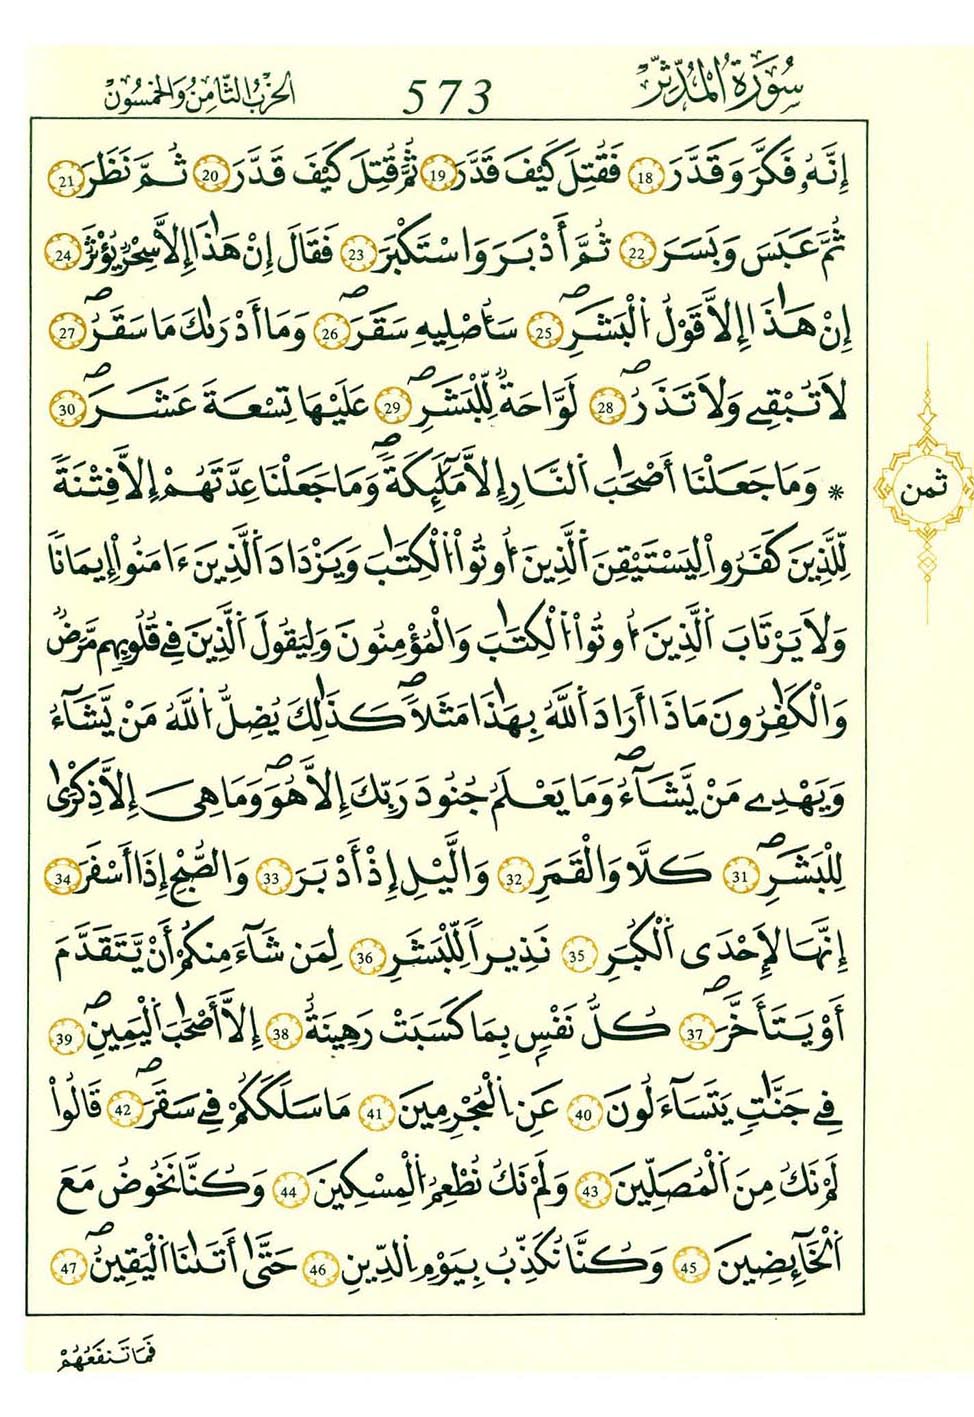 سُورَةُ الْمُدَّثِّرِ 573 الحِزْبُ الثَّامِنُ وَالخَمْسُون
إِنَّهُۥ فَكَّرَ وَقَدَّرَ 18 فَقُتِلَ كَيْفَ قَدَّرَ 19 ثُمَّ قُتِلَ كَيْفَ قَدَّرَ 20 ثُمَّ نَظَرَ 21
ثُمَّ عَبَسَ وَبَسَرَ 22 ثُمَّ أَدْبَرَ وَاسْتَكْبَرَ 23 فَقَالَ إِنْ هَٰذَا إِلاَّ سِحْرٌ يُؤْثَرُ 24
إِنْ هَٰذَا إِلاَّ قَوْلُ اُ۬لْبَشَرِۖ 25 سَأُصْلِيهِ سَقَرَۖ 26 وَمَا أَدْرَىٰكَ مَا سَقَرُۖ 27
لاَ تُبْقِے وَلاَ تَذَرُۖ 28 لَوَّاحَةٌ لِّلْبَشَرِۖ 29 عَلَيْهَا تِسْعَةَ عَشَرَۖ 30
* وَمَا جَعَلْنَا أَصْحَٰبَ اَ۬لنَّارِ إِلاَّ مَلَٰٓئِكَةٗۖ وَمَا جَعَلْنَا عِدَّتَهُمْ إِلاَّ فِتْنَةٗ
لِّلَّذِينَ كَفَرُواْ لِيَسْتَيْقِنَ اَ۬لَّذِينَ أُوتُواْ اُ۬لْكِتَٰبَ وَيَزْدَادَ اَ۬لَّذِينَ ءَامَنُواْ إِيمَاناٗ
وَلاَ يَرْتَابَ اَ۬لَّذِينَ أُوتُواْ اُ۬لْكِتَٰبَ وَالْمُؤْمِنُونَ وَلِيَقُولَ اَ۬لَّذِينَ فِے قُلُوبِهِم مَّرَضٌ
وَالْكَٰفِرُونَ مَاذَا أَرَادَ اَ۬للَّهُ بِهَٰذَا مَثَلاٗۖ كَذَٰلِكَ يُضِلُّ اُ۬للَّهُ مَنْ يَّشَآءُ
وَيَهْدِے مَنْ يَّشَآءُۖ وَمَا يَعْلَمُ جُنُودَ رَبِّكَ إِلاَّ هُوَۖ وَمَا هِىَ إِلاَّ ذِكْرَىٰ
لِلْبَشَرِۖ 31 كَلَّا وَالْقَمَرِ 32 وَالَّيْلِ إِذْ أَدْبَرَ 33 وَالصُّبْحِ إِذَا أَسْفَرَ 34
إِنَّهَا لَإِحْدَى اَ۬لْكُبَرِ 35 نَذِيراٗ لِّلْبَشَرِ 36 لِمَن شَآءَ مِنكُمُ أَنْ يَّتَقَدَّمَ
أَوْ يَتَأَخَّرَۖ 37 كُلُّ نَفْسِۢ بِمَا كَسَبَتْ رَهِينَةٌ 38 إِلاَّ أَصْحَٰبَ اَ۬لْيَمِينِۖ 39
فِے جَنَّٰتٖ يَتَسَآءَلُونَ 40 عَنِ اِ۬لْمُجْرِمِينَ 41 مَا سَلَكَكُمْ فِے سَقَرَۖ 42 قَالُواْ
لَمْ نَكُ مِنَ اَ۬لْمُصَلِّينَ 43 وَلَمْ نَكُ نُطْعِمُ اُ۬لْمِسْكِينَ 44 وَكُنَّا نَخُوضُ مَعَ
اَ۬لْخَآئِضِينَ 45 وَكُنَّا نُكَذِّبُ بِيَوْمِ اِ۬لدِّينِ 46 حَتَّىٰ أَتَىٰنَا اَ۬لْيَقِينُۖ 47
ثمن
فَمَا تَنفَعُهُمْ